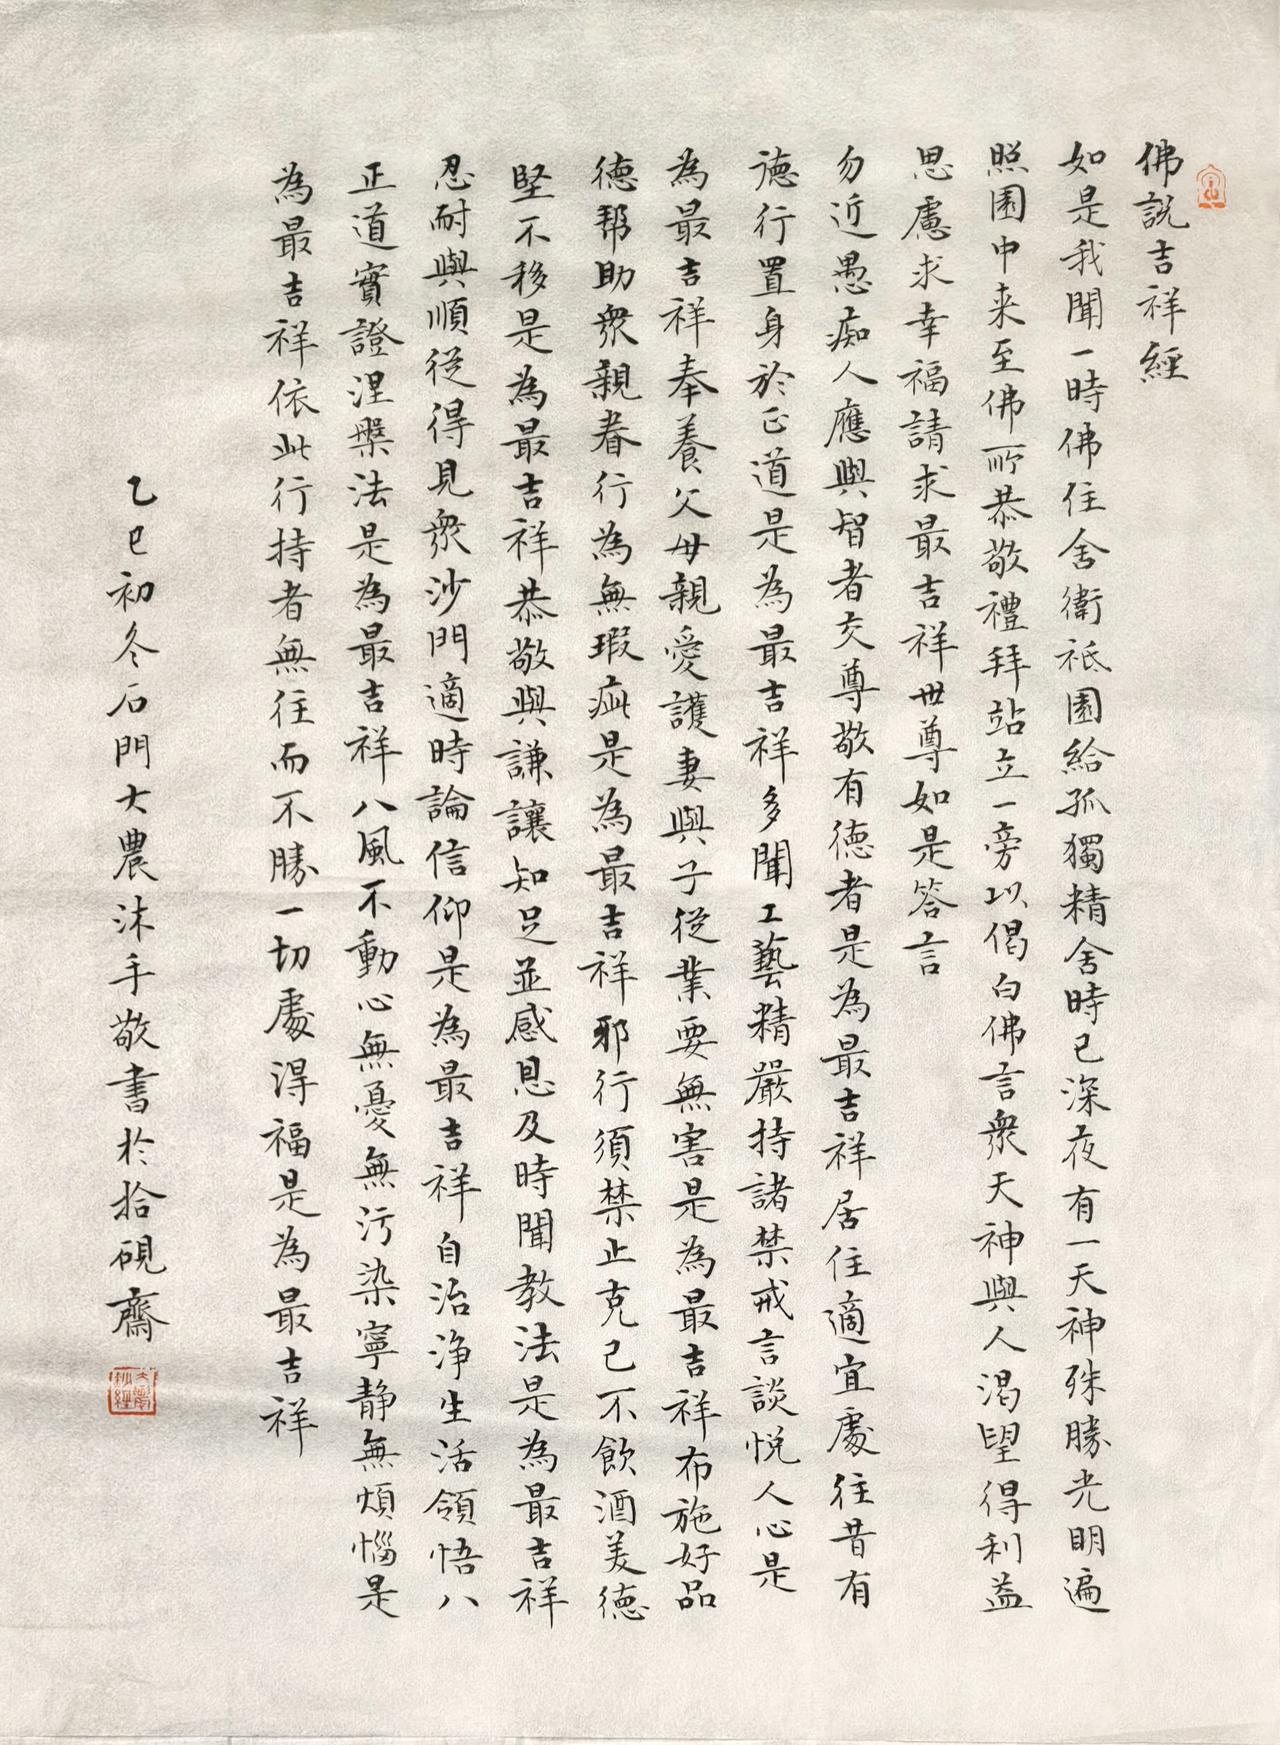 佛説吉祥經
如是我聞一時佛住舍衛祇園給孤獨精舍時已深夜有一天神殊勝光明遍
照園中来至佛所恭敬禮拜站立一旁以偈白佛言衆天神與人渴望得利益
思慮求幸福請求最吉祥世尊如是答言
勿近愚痴人應與智者交尊敬有德者是為最吉祥居住適宜處往昔有
德行置身於正道是為最吉祥多聞工藝精嚴持諸禁戒言談悦人心是
為最吉祥奉養父母親愛護妻與子從業要無害是為最吉祥布施好品
德幇助衆親眷行為無瑕疵是為最吉祥邪行須禁止克己不飲酒美德
堅不移是為最吉祥恭敬與謙讓知足並感恩及時聞教法是為最吉祥
忍耐與順從得見衆沙門適時論信仰是為最吉祥自治净生活領悟八
正道實證涅槃法是為最吉祥八風不動心無憂無污染寧静無煩惱是
為最吉祥依此行持者無往而不勝一切處得福是為最吉祥
乙巳初冬石門大農沐手敬書於拾硯齋